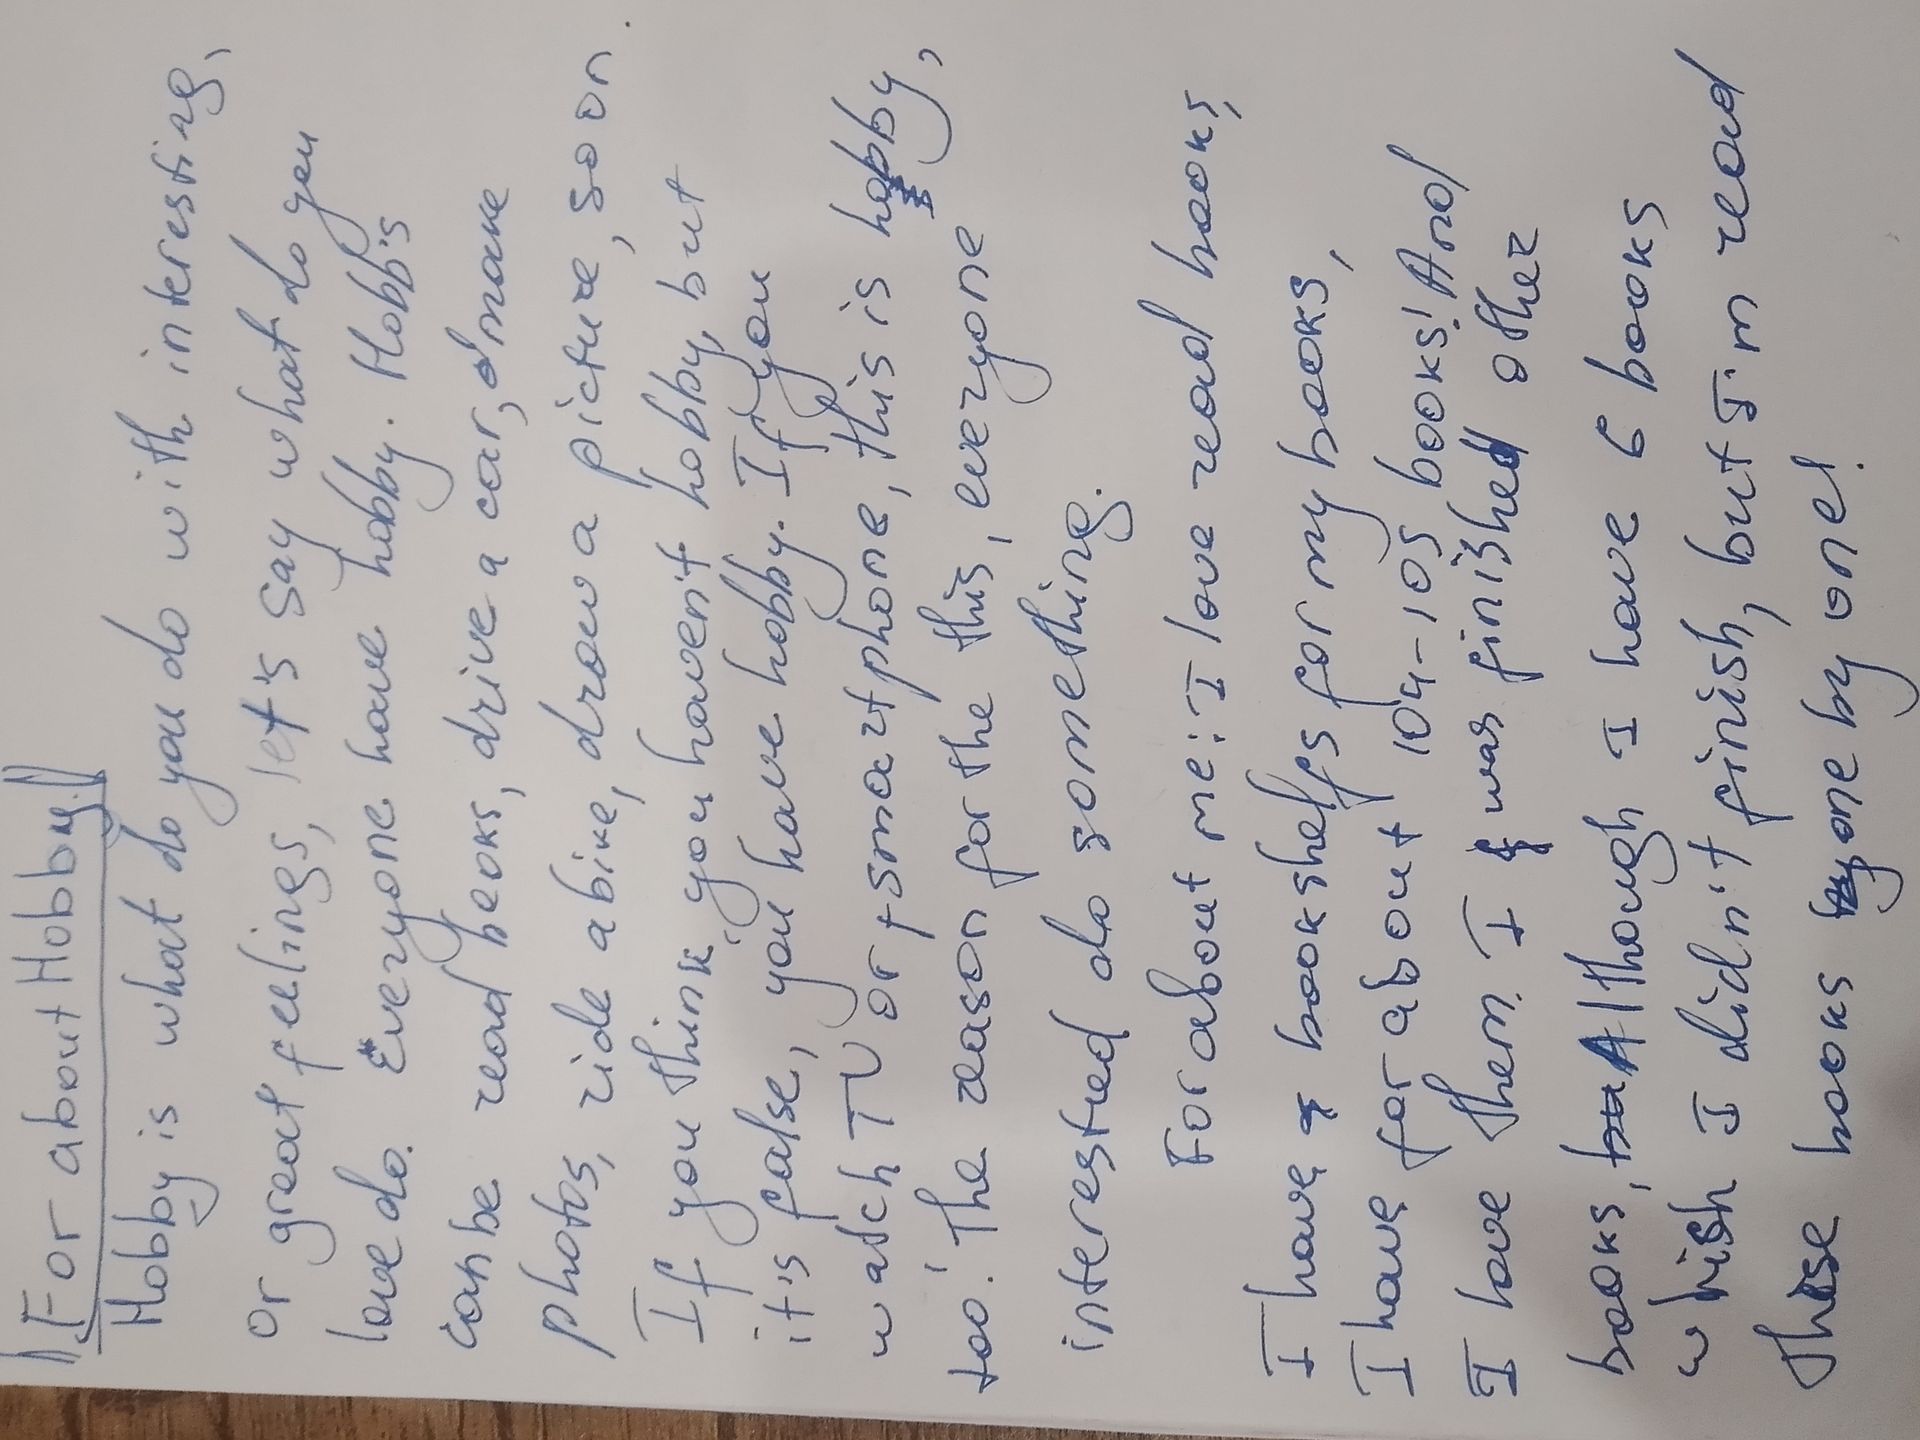 For about Hobby!
Hobby is what do you do with interesting,
or great feelings, let's say what do you
love do. Everyone have hobby. Hobb's
can be read books, drive a car, make
photos, ride a bike, drow a picture, so on.
If you think, you haven't hobby, but
it's false, you have hobby. If you
watch TV or smartphone, this is hobby,
too. The reason for the this, everyone
interested do something.
For about me: I love read books,
I have bookshelfs for my books,
I have for about 104-105 books! And
I love them. I was finished other
books, Although I have 6 books
which I didn't finish, but I'm read
these books one by one!